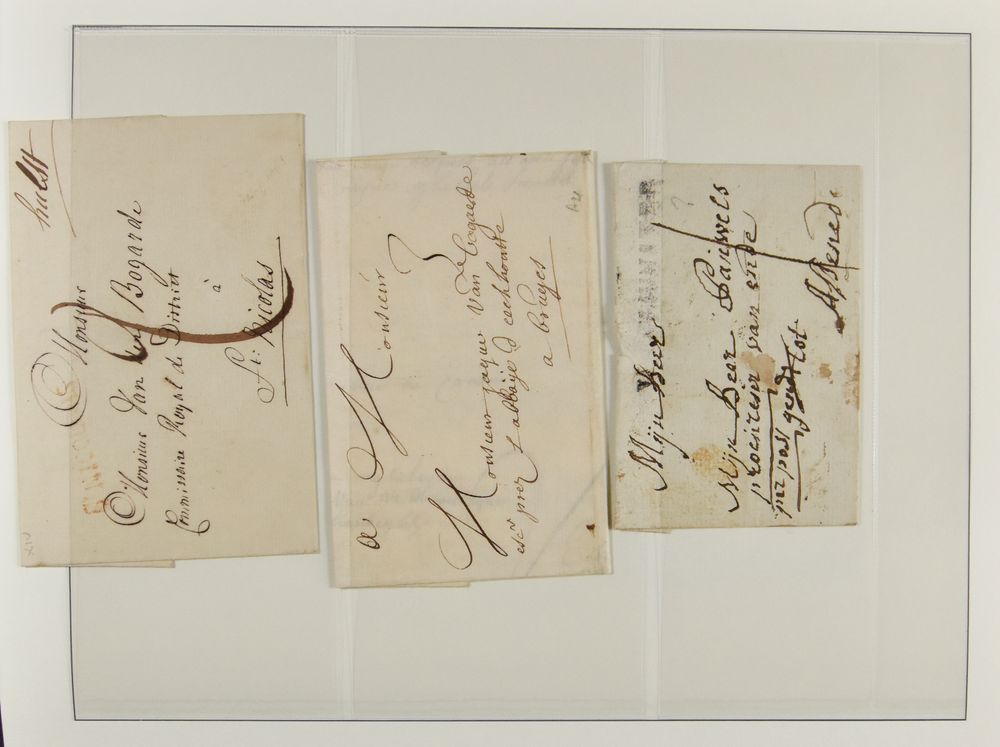 hulst
Monsieur
Monsieur Van Bogarde
Commissaire Royal de District
à
St: Nicolas
XIV
a Monsieur
3
Monsieur jaque Van de bogaerde
escr prez L'abbaÿe d'eechhoutte
a bruges
Mijn Heer
Mijn Heer Pauwels
procureur van ende
per post gendt tot
Assened